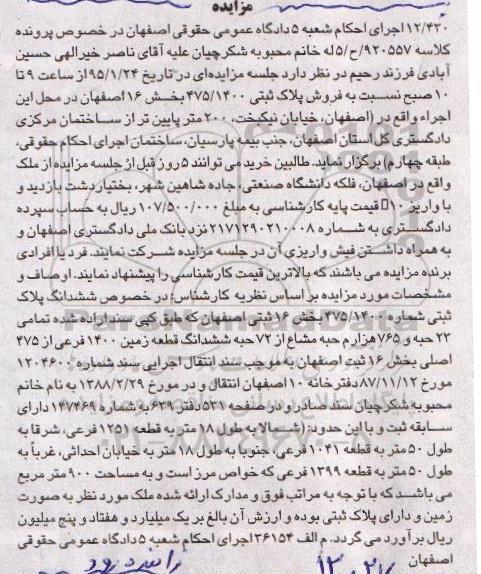 مزایده
۱۲/۴۳۰ اجرای احکام شعبه ۵ دادگاه عمومی حقوقی اصفهان در خصوص پرونده
کلاسه ۹۲۰۵۵۷/ح/۵ له خانم محبوبه شکرچیان علیه آقای ناصر خیرالهی حسین
آبادی فرزند رحیم در نظر دارد جلسه مزایده‌ای در تاریخ ۹۵/۱/۲۴ از ساعت ۹ تا
۱۰ صبح نسبت به فروش پلاک ثبتی ۴۷۵/۱۴۰۰ بخش ۱۶ اصفهان در محل این
اجراء واقع در (اصفهان، خیابان نیکبخت، ۲۰۰ متر پایین تر از ساختمان مرکزی
دادگستری کل استان اصفهان، جنب بیمه پارسیان، ساختمان اجرای احکام حقوقی،
طبقه چهارم) برگزار نماید. طالبین خرید می توانند ۵ روز قبل از جلسه مزایده از ملک
واقع در اصفهان، فلکه دانشگاه صنعتی، جاده شاهین شهر، بختیاردشت بازدید و
با واریز ۱۰٪ قیمت پایه کارشناسی به مبلغ ۱۰۷/۵۰۰/۰۰۰ ریال به حساب سپرده
دادگستری به شماره ۲۱۷۱۲۹۰۲۱۰۰۰۸ نزد بانک ملی دادگستری اصفهان و
به همراه داشتن فیش واریزی آن در جلسه مزایده شرکت نمایند. فرد یا افرادی
برنده مزایده می باشند که بالاترین قیمت کارشناسی را پیشنهاد نمایند. اوصاف و
مشخصات مورد مزایده بر اساس نظریه کارشناس: در خصوص ششدانگ پلاک
ثبتی شماره ۴۷۵/۱۴۰۰ بخش ۱۶ ثبتی اصفهان که طبق کپی سند اراده شده تمامی
۲۳ حبه و ۷۶۵ هزارم حبه مشاع از ۷۲ حبه ششدانگ قطعه زمین ۱۴۰۰ فرعی از ۴۷۵
اصلی بخش ۱۶ ثبت اصفهان به موجب سند انتقال اجرایی سند شماره ۱۲۰۴۶۰۰
مورخ ۸۷/۱۱/۱۲ دفترخانه ۱۰ اصفهان انتقال و در مورخ ۱۳۸۸/۲/۲۹ به نام خانم
محبوبه شکرچیان سند صادر و در صفحه ۵۳۱ دفتر ۶۳۹ به شماره ۱۴۷۴۶۹ دارای
سابقه ثبت و با این حدود: (شمالا به طول ۱۸ متر به قطعه ۱۲۵۱ فرعی، شرقا به
طول ۵۰ متر به قطعه ۱۰۴۱ فرعی، جنوبا به طول ۱۸ متر به خیابان احداثی، غرباً به
طول ۵۰ متر به قطعه ۱۳۹۹ فرعی که خواص مرز است و به مساحت ۹۰۰ متر مربع
می باشد که با توجه به مراتب فوق و مدارک ارائه شده ملک مورد نظر به صورت
زمین و دارای پلاک ثبتی بوده و ارزش آن بالغ بر یک میلیارد و هفتاد و پنج میلیون
ریال برآورد می گردد. م الف ۳۶۱۵۴ اجرای احکام شعبه ۵ دادگاه عمومی حقوقی
اصفهان